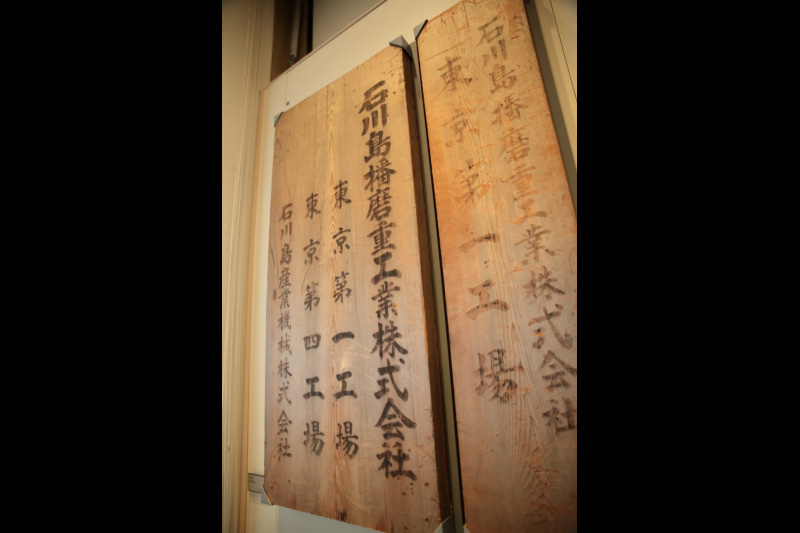 石川島播磨重工業株式会社
東京第一工場
石川島播磨重工業株式会社
東京第一工場
東京第四工場
石川島産業機械株式会社